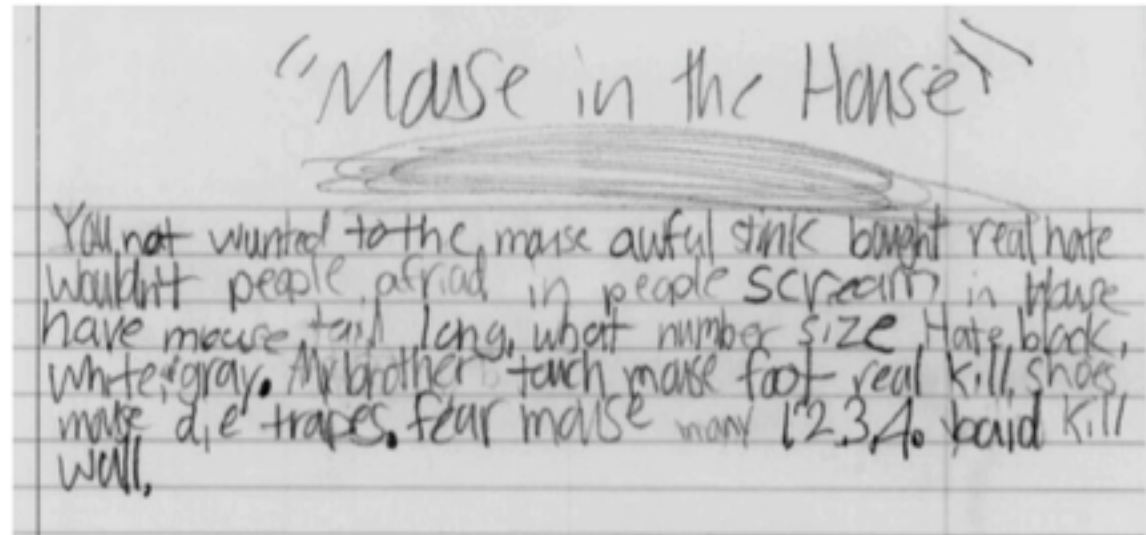 "Mouse in the House"
You not wunted to the mouse awful stink bought real hate
wouldn't people afriad in people scream in House
have mouse tail long, what number size Hate black,
white, gray. My brother touch mouse foot real kill, shoes
mouse die trapes. fear mouse many 1,2,3,4. kill
wall,